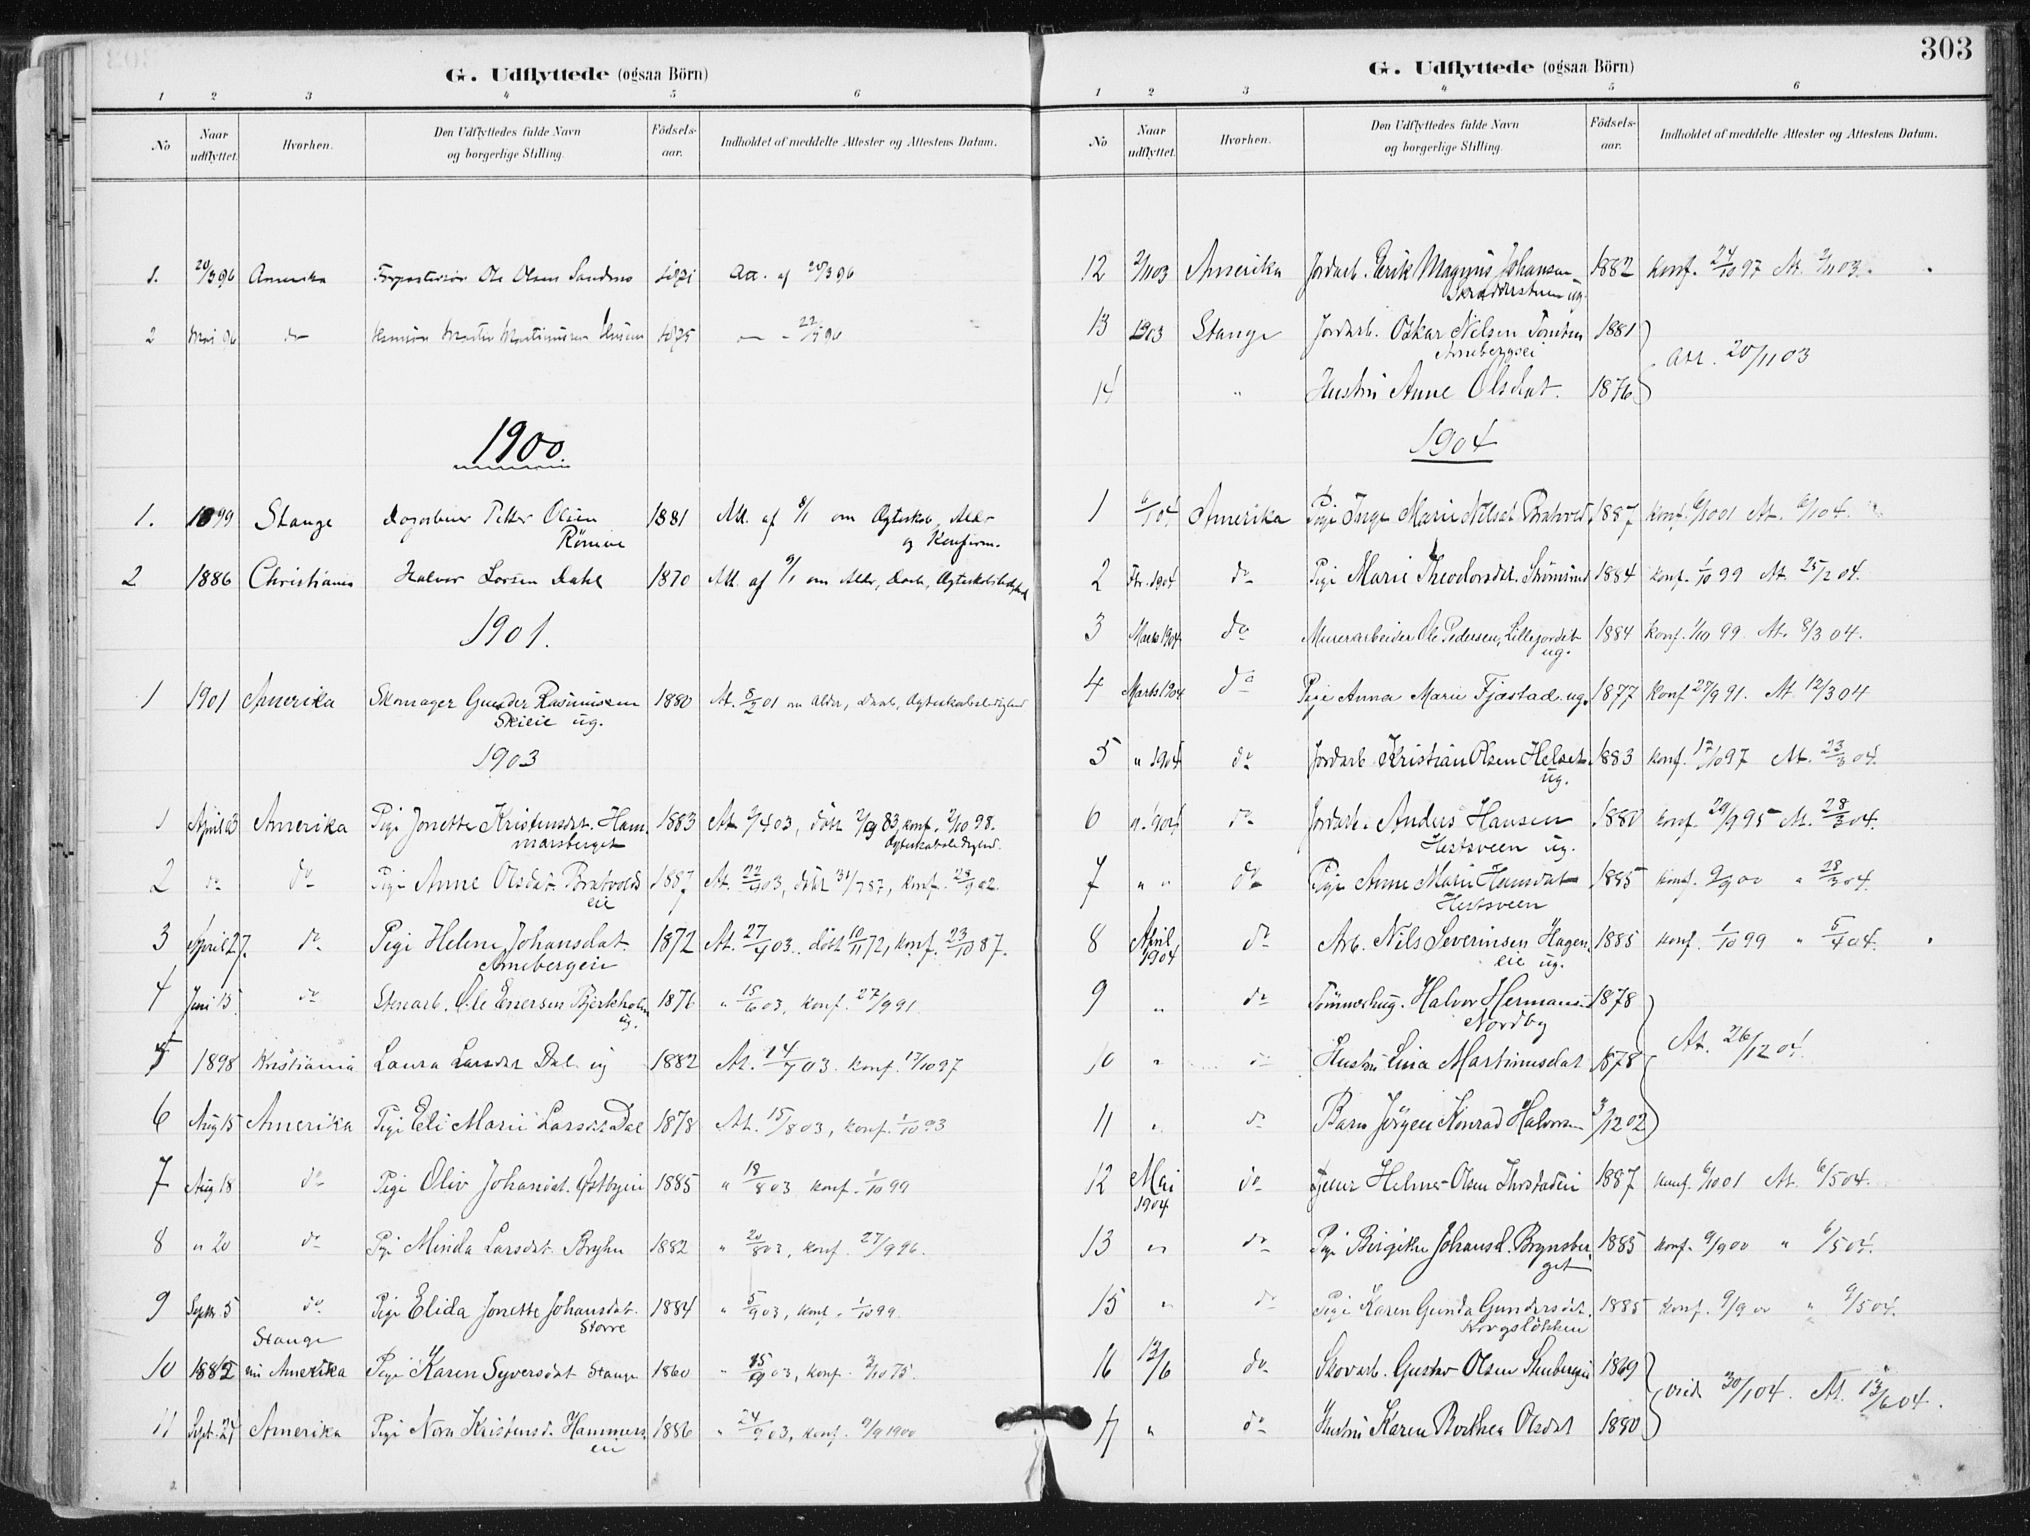 G. Udflyttede (ogsaa Börn)
1 2 3 4 5 6
No Naar udflyttet. Hvorhen. Den Udflyttedes fulde Navn og borgerlige Stilling. Födsels-aar. Indholdet af meddelte Attester og Attestens Datum.
1. 20/3 96 Amerika Ole Olsen Att. af 20/3 96
2 Mai 96 do 22/5 96
1900.
1. 1899 Stange Petter Olsen 1881 Att. af 8/1 om Ægteskab, Alder
og Konfirm.
2 1886 Christiania Halvor Larsen Dahl 1870 Att. af 9/1 om Alder, Daab,
1901.
1 1901 Amerika Skomager Gunder Rasmussen 1880 At. 8/2 01 om Alder, Daab, Ægteskabsledighed
Skieie ug.
1903
1 April 03 Amerika Pige Jonette Kristensdat. Ham- 1883 At. 2/4 03, döbt 2/9 83, konf. 2/10 98.
marsberget Ægteskabsledighed.
2 do do Pige Anne Olsdat. Bratvolds 1887 At. 22/4 03, döbt 31/7 87, konf. 28/9 02.
eie
3 April 27. do Pige Helene Johansdat. 1872 At. 27/4 03. döbt 10/11 72, konf. 23/10 87.
Arnebergeie
4 Juni 15 do Stenarb. Ole Enersen Bjerkholm 1876 " 15/6 03, konf. 27/9 91
ug.
5 1898 Kristiania Laura Larsdat Dal ug 1882 At. 14/7 03. konf. 17/10 97
6 Aug 15 Amerika Pige Eli Marie Larsdat Dal 1878 At. 15/8 03, konf. 1/10 93
7 Aug 18 do Pige Oliv Johansdat. Østbyeie 1885 " 18/8 03, konf. 1/10 99
8 " 20 do Pige Minda Larsdat. Bryhn 1882 " 20/8 03, konf. 27/9 96.
9 Septb. 5 do Pige Elida Jonette Johansdat. 1884 " 5/9 03, konf. 1/10 99.
Storre
Stange
10 1882 nu Amerika Pige Karen Syversdat Stange 1860 " 15/9 03, konf. 3/10 75.
11 Sept. 24 Amerika Pige Nora Kristensd. Hammers- 1886 " 24/9 03, konf. 9/9 1900
eie
303
G. Udflyttede (ogsaa Börn)
1 2 3 4 5 6
No Naar udflyttet. Hvorhen. Den Udflyttedes fulde Navn og borgerlige Stilling. Födsels-aar. Indholdet af meddelte Attester og Attestens Datum.
12 2/11 03 Amerika Jordarb. Erik Magnus Johansen 1882 konf. 24/10 97 At. 2/11 03.
ug.
13 1903 Stange Jordarb. Oskar Nilsen 1881
Arnebergeie
Att. 20/11 03
14 " Hustru Anne Olsdat. 1876
1904
1 6/1 04 Amerika Pige Inga Marie Nilsdt Bratvold 1887 konf. 6/10 01 At. 6/1 04.
2 Fbr. 1904 do Pige Marie Theodorsdat. Strömsnd 1884 konf. 1/10 99 At. 25/2 04.
3 Marts 1904 do Murerarbeider Ole Pedersen, Lillejordet 1884 konf. 1/10 99. At. 8/3 04.
ug.
4 Marts 1904 do Pige Anna Marie Fjæstad ug. 1877 konf 27/9 91. At. 12/3 04
5 " 1904 do Jordarb. Kristian Olsen Helset 1883 konf. 17/10 97 At. 23/3 04.
ug.
6 " 1904 do Jordarb. Anders Hansen 1880 konf. 29/9 95 At. 28/3 04.
Hestsveen ug.
7 " " do Pige Anne Marie Hansdat 1885 konf. 9/9 00 " 28/3 04.
Hestsveen
8 April do Arb. Nils Severinsen Hagen- 1885 konf. 1/10 99 " 5/4 04.
1904 eie ug.
9 " do Tömmerhug. Halvor Hermans. 1878
Nordby
At. 26/12 04.
10 " do Hustru Lina Martinusdat 1878
11 " do Barn Jörgen Konrad Halvorsen 3/12 02
12 Mai do Helmer Olsen 1887 konf. 6/10 01 At. 6/5 04.
1904
13 " do Pige Birgithe Johansd. Brynsber- 1885 konf. 9/9 00 " 6/5 04.
get
15 " do Pige Karen Gunda Gundersdat. 1885 konf. 9/9 00 " 9/5 04.
16 13/6 do Skovarb. Gustav Olsen Stenbergeie 1869
viede 30/1 04. At. 13/6 04.
17 " do Hustru Karen Borthea Olsdat 1880